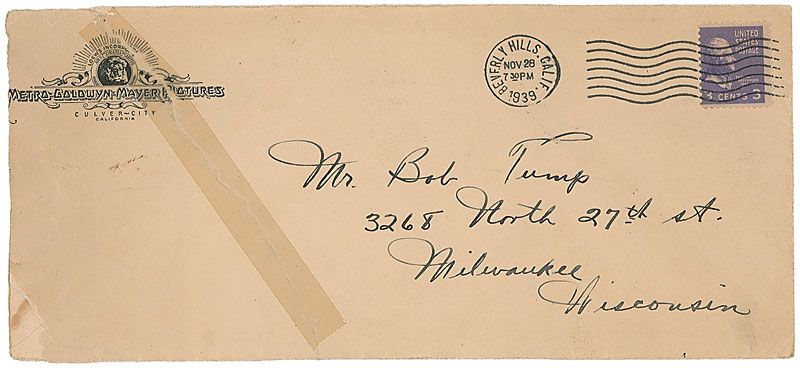 LOEW'S INCORPORATED
METRO-GOLDWYN-MAYER PICTURES
CULVER-CITY
CALIFORNIA
BEVERLY HILLS, CALIF.
NOV 28
7 30 PM
1939
UNITED
STATES
POSTAGE
3 CENTS 3
Mr. Bob Tump
3268 North 27th st.
Milwaukee
Wisconsin